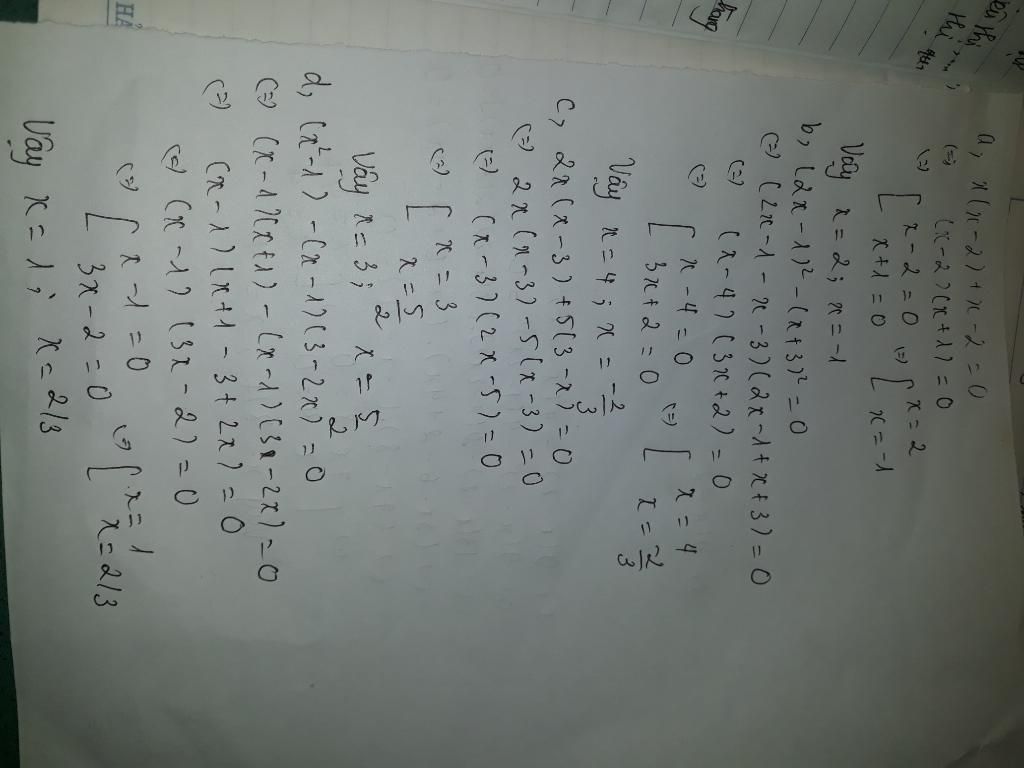 a, x(x-2)+x-2=0
(=) (x-2)(x+1)=0
(=) [ x-2=0 (=) [ x=2
x+1=0 x=-1
Vậy x=2; x=-1
b, (2x-1)² -(x+3)² =0
(=) (2x-1-x-3)(2x-1+x+3)=0
(=) (x-4) (3x+2)=0
(=) [ x-4=0 (=) [ x=4
3x+2=0 x=-2/3
Vậy x=4; x=-2/3
c, 2x(x-3)+5(3-x)=0
(=) 2x(x-3)-5(x-3)=0
(=) (x-3)(2x-5)=0
(=) [ x=3
x=5/2
Vậy x=3; x=5/2
d, (x²-1) -(x-1)(3-2x)=0
(=) (x-1)(x+1) -(x-1)(3-2x)=0
(=) (x-1)(x+1-3+2x)=0
(=) (x-1) (3x-2)=0
(=) [ x-1=0 (=) [ x=1
3x-2=0 x=2/3
Vậy x=1; x=2/3